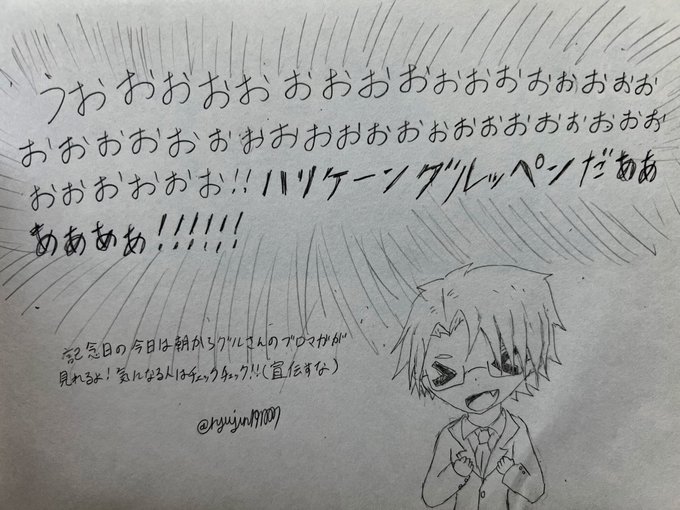 うおおおおおおおおおおおおおおおおお
おおおおおおおおおおおおおおおおおおおおおお
おおおおおおお!!ハリケーングルッペンだぁぁ
ぁぁぁぁ!!!!!!
記念日の今日は朝からグルさんのブロマガが
見れるよ!気になる人はチェックチェック!!(宣伝すな)